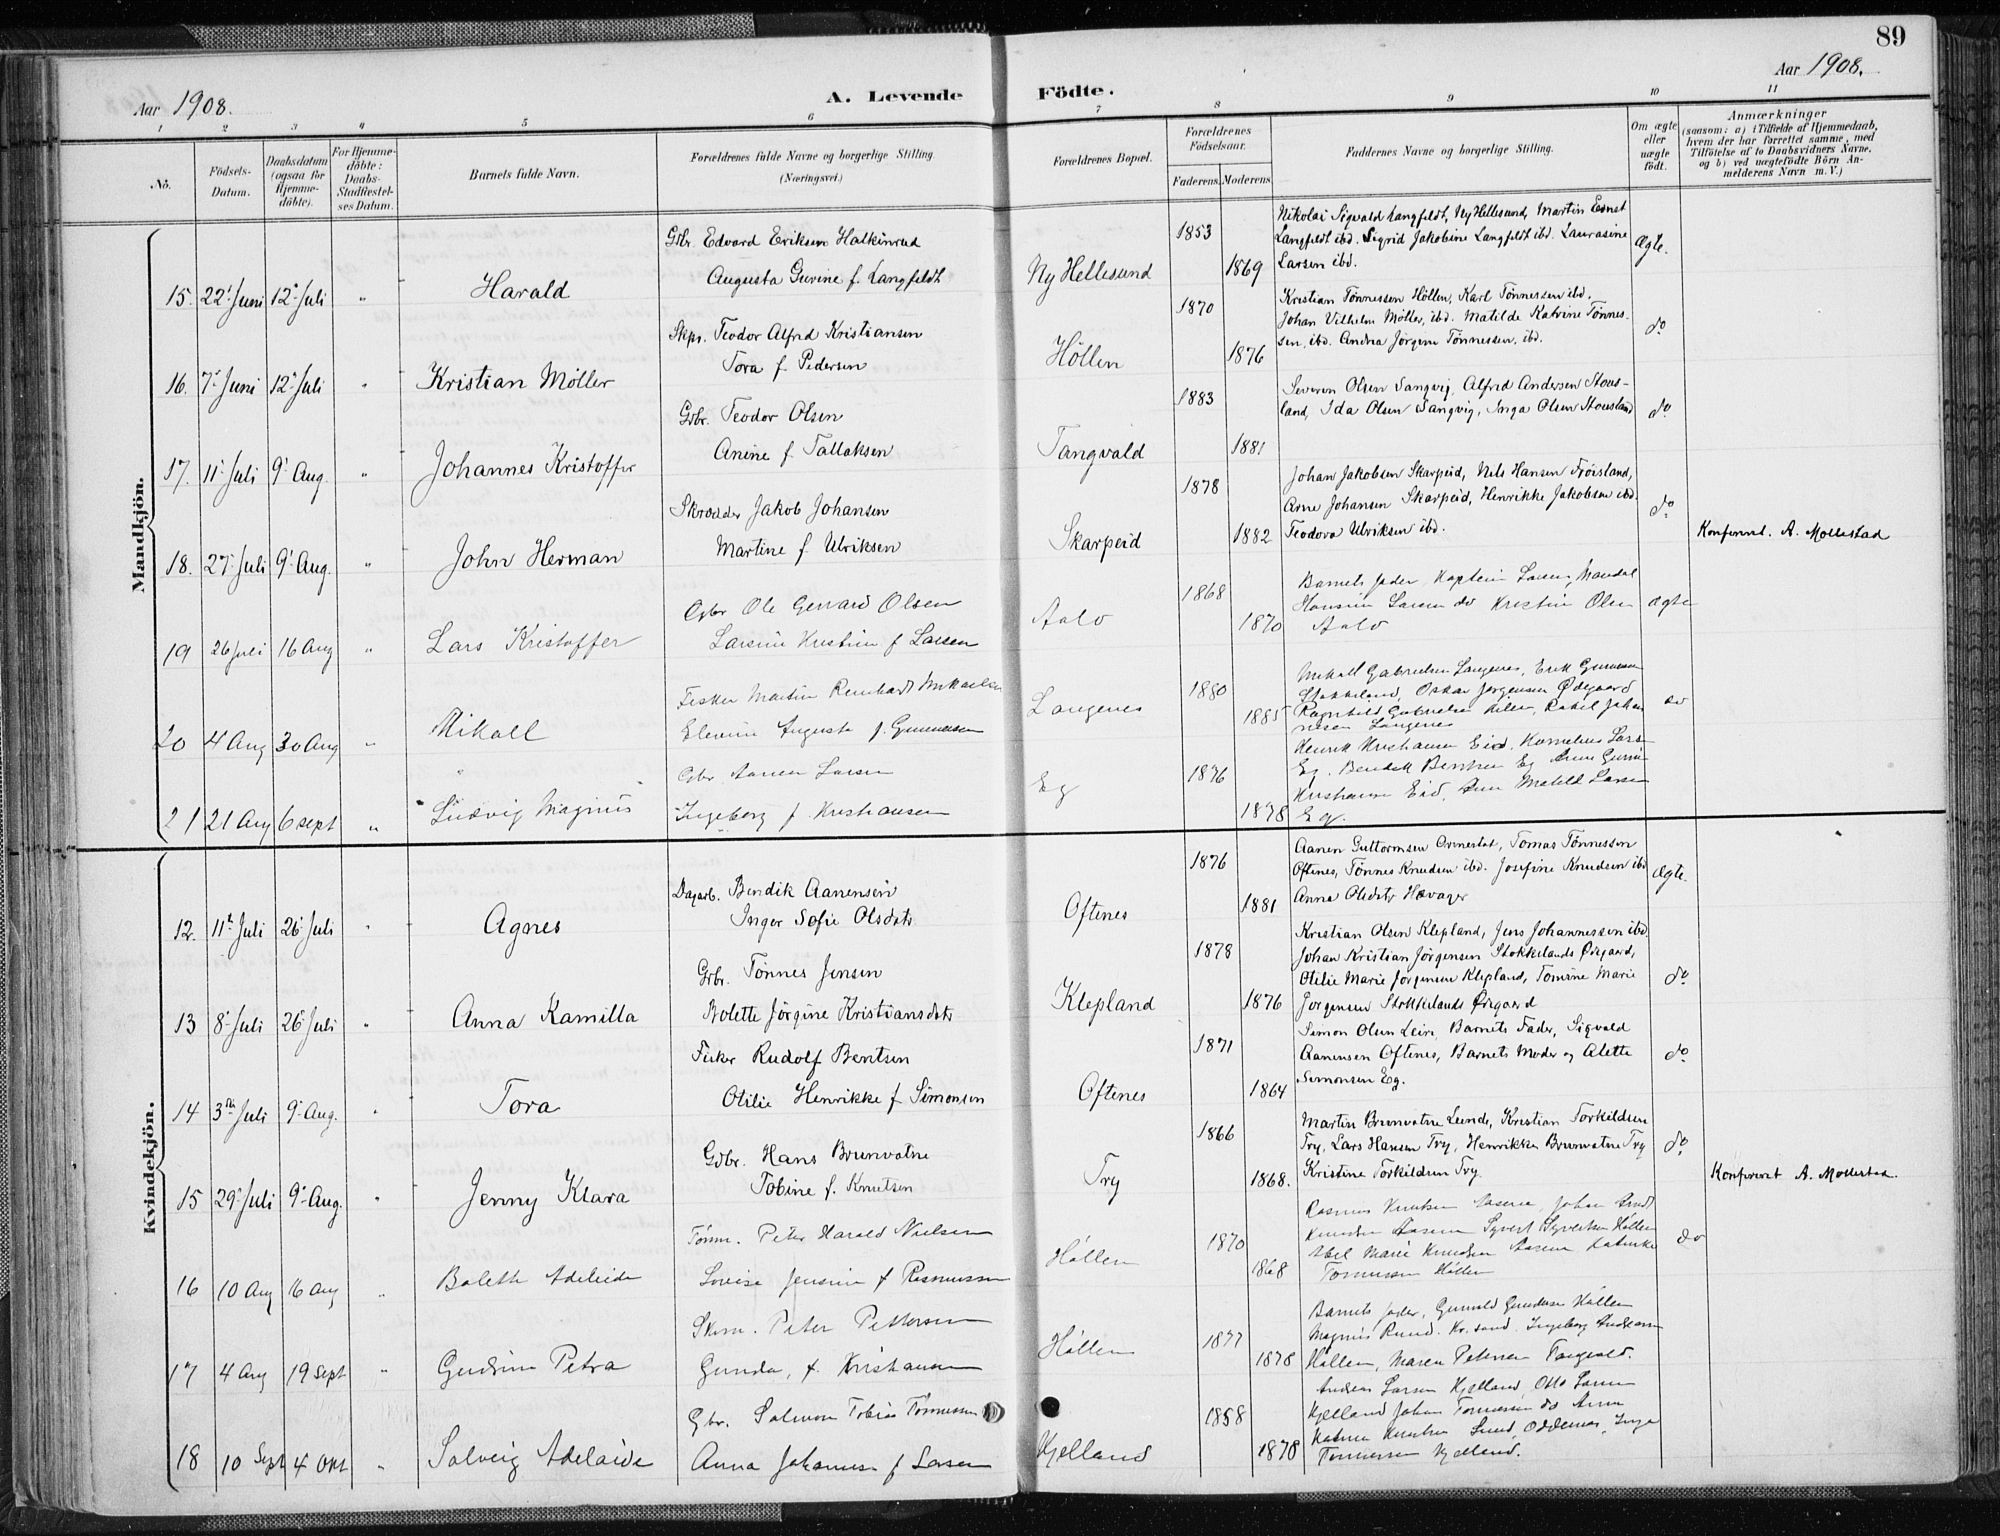 89
Aar 1908.
A. Levende Födte.
Aar 1908.
1 2 3 4 5 6 7 8 9 10 11
No.
Födsels-Datum.
Daabsdatum (ogsaa for Hjemme-döbte).
For Hjemme-döbte: Daabs-Stadfæstel-ses Datum.
Barnets fulde Navn.
Forældrenes fulde Navne og borgerlige Stilling.
(Næringsvei.)
Forældrenes Bopæl.
Forældrenes Födselsaar.
Faderens. Moderens.
Faddernes Navne og borgerlige Stilling.
Om ægte eller uægte födt.
Anmærkninger
(saasom: a) i Tilfælde af Hjemmedaab, hvem der har forrettet samme, med Tilföielse af to Daabsvidners Navne, og b) ved uægtefödte Börn An-melderens Navn m. V.)
Mandkjön.
Gbr. Edvard Eriksen Halkinrud 1853 Nikolai Sigvald Langfeldt, Ny Hellesund, Martin Ernst
Langfeldt ibd. Sigrid Jakobine Langfeldt ibd. Laurasine Ægte.
15. 22' Juni 12' Juli " Harald Augusta Guvine f. Langfeldt Ny Hellesund 1869 Larsen ibd.
Skps. Teodor Alfred Kristiansen 1870 Kristian Tönnessen Höllen, Karl Tönnessen ibd.
Johan Vilhelm Møller, ibd. Matilde Katrine Tönnes- do
16. 7' Juni 12' Juli " Kristian Møller Tora f. Pedersen Höllen 1876 sen, ibd. Andrea Jørgine Tönnessen, ibd.
Gbr. Teodor Olsen 1883 Severin Olsen Sangvig, Alfred Andersen Stous-
land, Ida Olsen Sangvig, Inga Olsen Stousland do
17. 11' Juli 9' Aug. " Johannes Kristoffer Anine f. Tallaksen Tangvald 1881
Skrædder Jakob Johansen 1878 Johan Jakobsen Skarpeid, Nils Hansen Frøisland,
Arne Johansen Skarpeid, Henrikke Jakobsen ibd. do
18. 27' Juli 9' Aug. " John Herman Martine f. Ulriksen Skarpeid 1882 Teodora Ulriksen ibd. Konfirmt. A. Mollestad
Gbr Ole Gerrard Olsen 1868 Barnets fader, Kaptein Larsen, Mandal
19 26 Juli 16 Aug " Lars Kristoffer Larsine Kristine f Larsen Aalo 1870 Hansine Larsen do Kristine Olsen Ægte
Aalo
Fisker Martin Reinhart Mikaelsen 1880 Mikall Gabrielsen Langenes, Erik Gunnersen
Stokkeland, Oskar Jørgensen Ødegaard
20 4 Aug 30 Aug " Mikall Augusta f. Gunnersen Langenes 1885 Ragnhild Gabrielsen Rakel Johan do
nesen Langenes
Gbr Aanen Larsen 1876 Henrik Kristiansen Eid, Kornelius Lars-
Eg. Bendik Eg
21 21 Aug 6 sept " Ludvig Magnus Ingeborg f. Kristiansen Eg 1878 Kristiansen Eid, Matild Larsen
Eg.
Kvindekjön.
Dagarb. Bendik Aanensen 1876 Aanen Guttormsen Ormestad, Tomas Tönnessen
Oftenes, Tönnes Knudsen ibd. Josefine Knudsen ibd Ægte.
12. 11te Juli 26' Juli " Agnes Inger Sofie Olsdatr. Oftenes 1881 Anna Olsdatr Havager
Gbr. Tönnes Jensen 1878 Kristian Olsen Klepland, Jens Johannessen ibd.
Johan Kristian Jörgensen Stokkelands Ødegaard,
Otilie Marie Jørgensen Klepland, Tomine Marie do
13 8' Juli 26' Juli " Anna Kamilla Bolette Jörgine Kristiansdatr Klepland 1876 Jørgensen Stokkelands Ødegaard
Fisker Rudolf Bentsen 1871 Simon Olsen Leire, Barnets Fader, Sigvald
Aanensen Oftenes, Barnets Moder og Alette do
14 3die Juli 9' Aug. " Tora Otilie Henrikke f Simonsen Oftenes 1864 Simonsen Eg.
Gbr. Hans Brunvatne 1866 Martin Brunvatne Lunde, Kristian Torkildsen
Try, Lars Hansen Try, Henrikke Brunvatne Try do
15 29' Juli 9' Aug. " Jenny Klara Tobine f. Knutsen Try 1868. Kristine Torkildsen Try. Konfirmt A. Mollestad.
Tömm. Peter Harald Nielsen 1870 Rasmus Knudsen Aasene Johan
Knudsen Aasen Syvert Syvertsen Höllen
Marie Knudsen Aasene do
16 10 Aug 16 Aug " Boleth Adeleide Lovise Jensine f Rasmussen Höllen 1868 Tönnessen Höllen
Skom. Peter Pettersen 1877 Barnets fader, Gunvald Gundersen Höllen
Magnus Rund. Kr.sand. Ingeborg Andersen
17 4 Aug 19 Sept " Gudrun Petra Gunda, f. Kristiansen Höllen 1878 Höllen, Maren Petersen Tangvald.
Gbr. Salmon Tobias Tönnessen 1858 Andreas Larsen Kjelland, Otto Larsen
Kjelland Johan Tönnessen do Anna
Knudsen Lund, Oddernes, Inga
18 10 Sept 4 Okt " Solveig Adelaide Anna Johannes f Larsen Kjelland 1878 Tönnessen Kjelland.